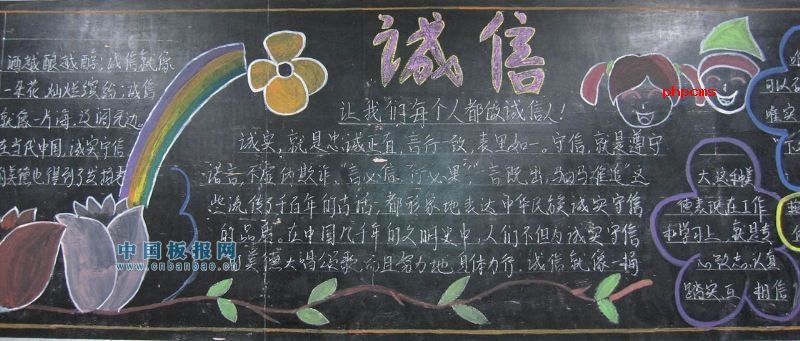 酒越酿越醇;诚信就像
一朵花,灿烂缤纷;诚信
就像一片海,及阔无边。
在当代中国,诚实守信
的美德也得到了发扬
中国板报网
www.cnbanbao.cn
诚信
让我们每个人都做诚信人!
诚实,就是忠诚正直,言行一致,表里如一。守信,就是遵守
诺言,不虚伪欺诈。“言必信,行必果”,“一言既出,驷马难追”这
些流传了千百年的古话,都形象地表达中华民族诚实守信
的品质。在中国几千年的文明史中,人们不但为诚实守信
的美德大唱颂歌,而且努力地身体力行。诚信就像一捅
phpcms
可以
唯实
大这种美
德表现在工作
和学习上,就是专
心致志,认真
踏实 互相信